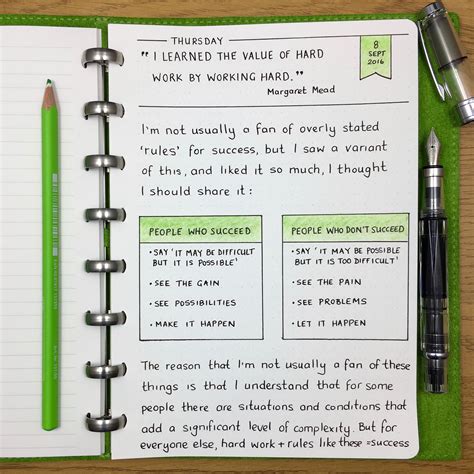 THURSDAY
8
SEPT
2016
"I LEARNED THE VALUE OF HARD
WORK BY WORKING HARD."
Margaret Mead
I'm not usually a fan of overly stated
'rules' for success, but I saw a variant
of this, and liked it so much, I thought
I should share it:
PEOPLE WHO SUCCEED
• SAY 'IT MAY BE DIFFICULT
BUT IT IS POSSIBLE'
• SEE THE GAIN
• SEE POSSIBILITIES
• MAKE IT HAPPEN
PEOPLE WHO DON'T SUCCEED
• SAY 'IT MAY BE POSSIBLE
BUT IT IS TOO DIFFICULT'
• SEE THE PAIN
• SEE PROBLEMS
• LET IT HAPPEN
The reason that I'm not usually a fan of these
things is that I understand that for some
people there are situations and conditions that
add a significant level of complexity. But for
everyone else, hard work + rules like these = success